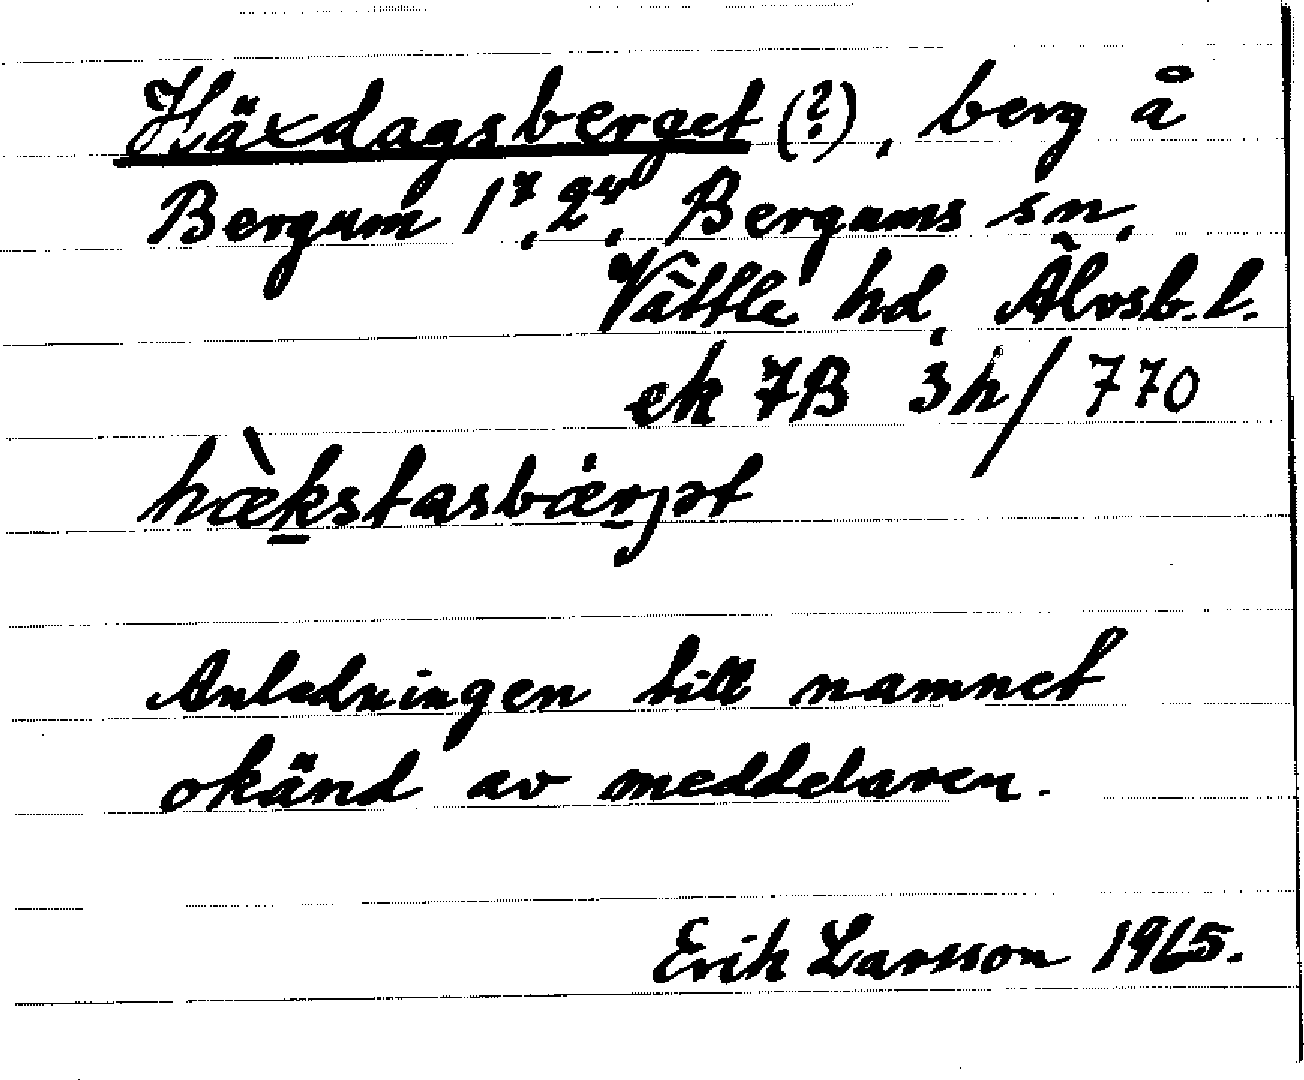 Häxdagsberget (?), berg å
Bergum 1⁷, 2⁴, Bergums sn,
Vättle hd, Älvsb. l.
ek 7B 3h/770
hæ̀kstasbæ̇rjət
Anledningen till namnet
okänd av meddelaren.
Erik Larsson 1965.